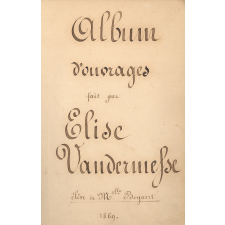 Album
d'ouvrages
fait par
Elise
Vandermesse
élève de M^elle
1869.